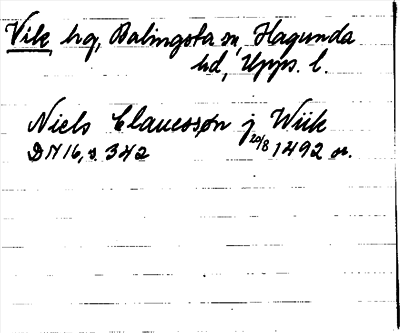 Vik hg, Balingsta sn, Hagunda
hd, Upps. l.
Niels Clauessøn j Wiik
DN 16, s. 342 20/8 1492 or.